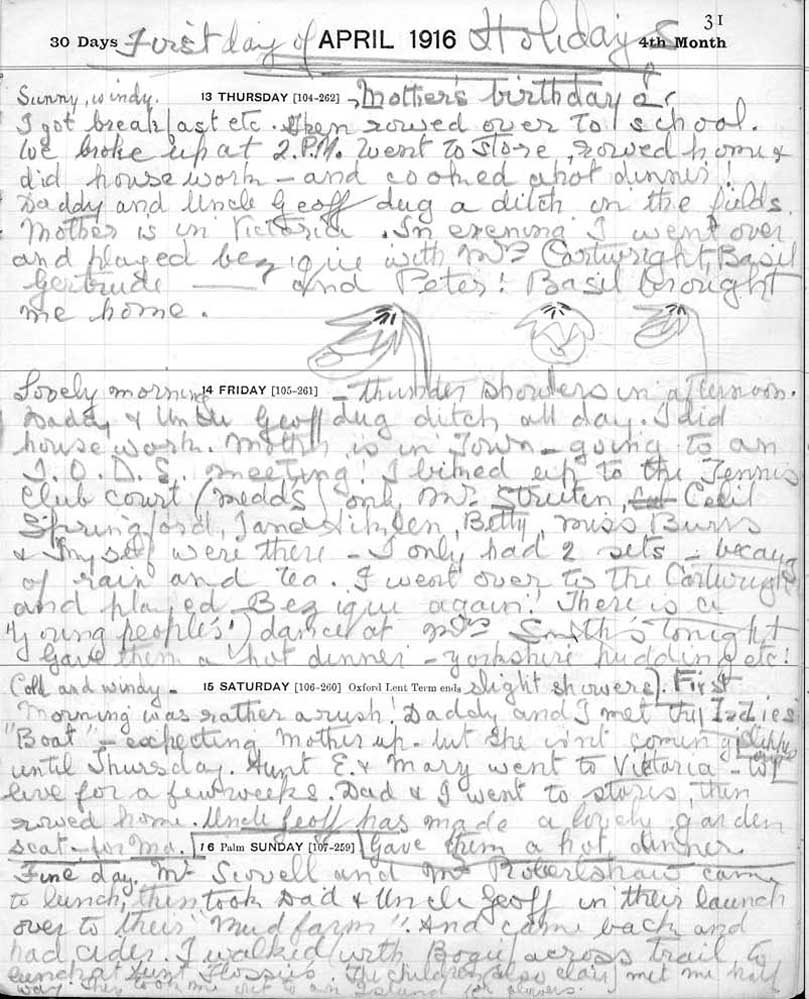 31
30 Days First day of APRIL 1916 Holidays 4th Month
Sunny, windy. 13 THURSDAY [104-262] Mother's birthday
I got breakfast etc. Then rowed over to school.
We broke up at 2.P.M. Went to store, rowed home &
did house work - and cooked a hot dinner!
Daddy and Uncle Geoff dug a ditch in the fields.
Mother is in Victoria. In evening I went over
and played bezique with Mrs Cartwright, Basil
Gertrude — and Peter! Basil brought
me home.
Lovely morning 14 FRIDAY [105-261] - thunder showers in afternoon.
Daddy & Uncle Geoff dug ditch all day. I did
house work. Mother is in Town - going to an
I.O.D.E. meeting! I biked up to the Tennis
Club court (Medds) only, Mr. Streeten, Cecil
Springford, Betty, Miss Burns
& Myself were there - I only had 2 sets - because
of rain and tea. I went over to the Cartwrights
and played Bezique again! There is a
"Young people's") dance at Mrs Smith's tonight
Gave them a hot dinner - yorkshire pudding etc!
Cold and windy - 15 SATURDAY [106-260] Oxford Lent Term ends slight showers. First
Morning was rather a rush! Daddy and I met the
"Boat" - expecting Mother up - but she isn't coming
until Thursday. Aunt E. & Mary went to Victoria - to
live for a few weeks. Dad & I went to stores, then
rowed home. Uncle Geoff has made a lovely garden
seat - for Ma. 16 Palm SUNDAY [107-259] Gave them a hot dinner.
Fine day. Mr and Mr Robertshaw came
to lunch, then took Dad & Uncle Geoff in their launch
over to their "mud farm". And came back and
had cider. I walked with Bogie across trail to
lunch at Aunt Flossie's. The children also Clair, met me half
way. They took me out to an Island for flowers.